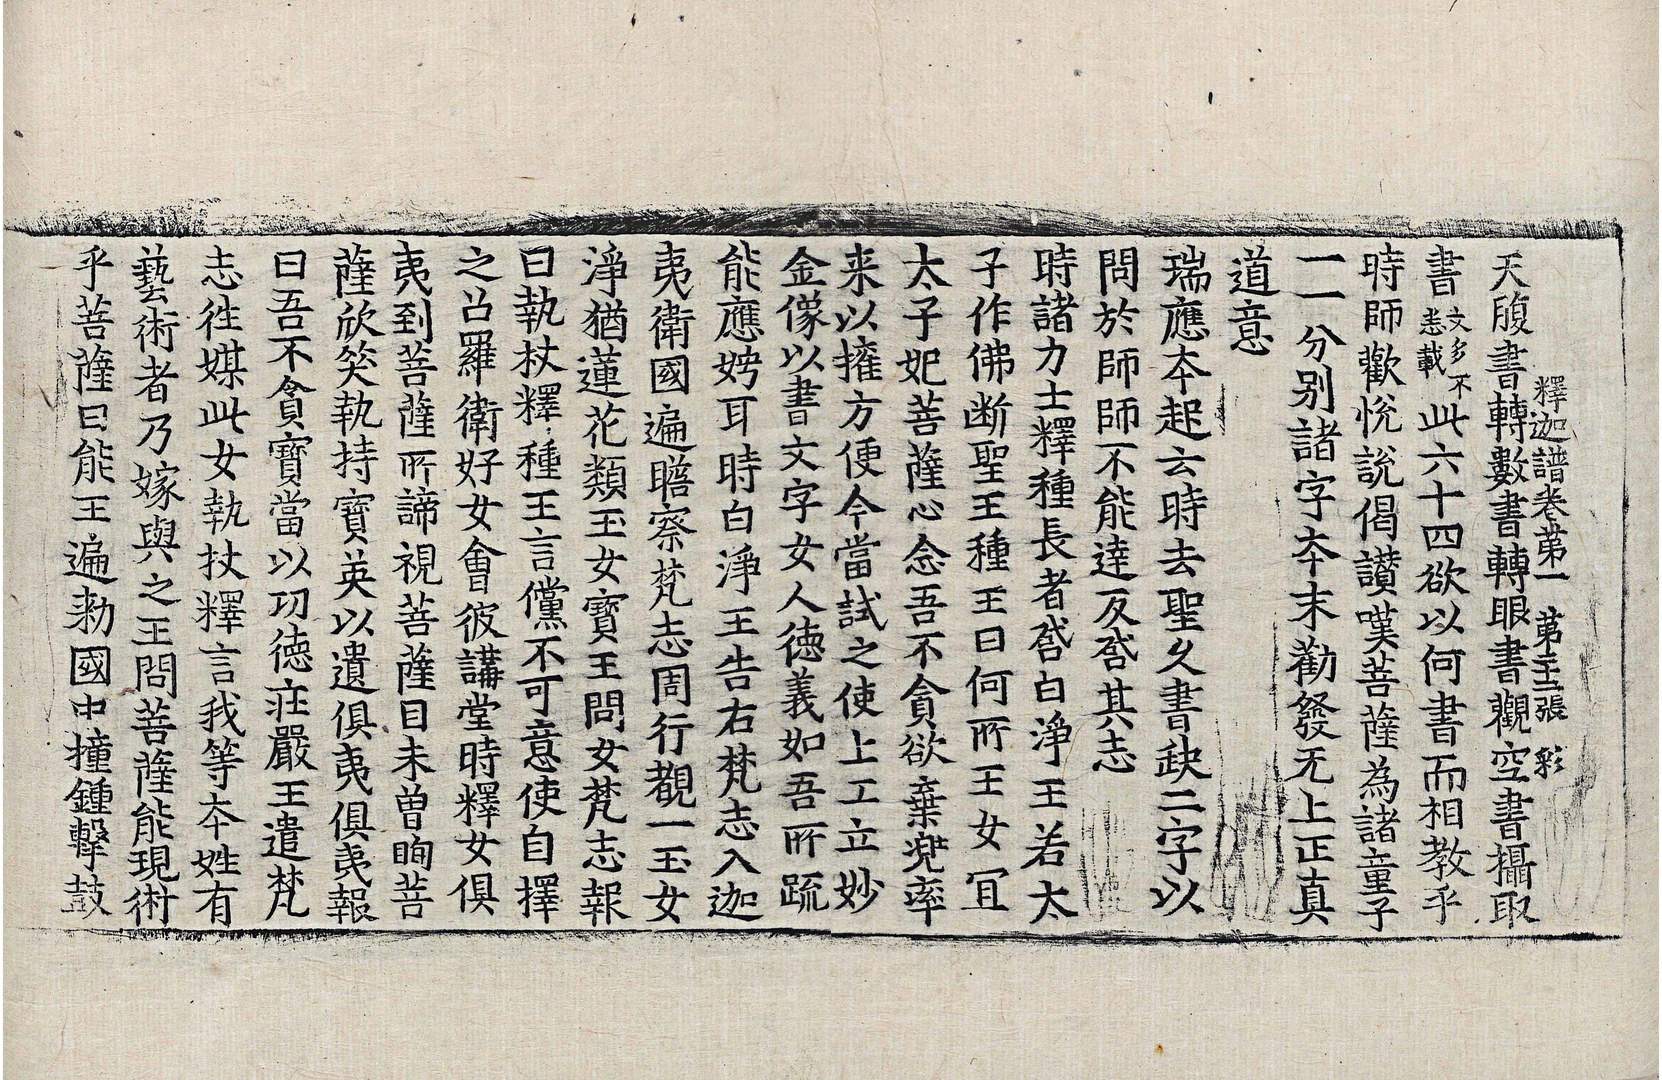 釋迦譜卷第一 第張 彩
天腹書轉數書轉眼書觀空書攝取
書文多不悉載此六十四欲以何書而相教乎
時師歡悅說偈讃嘆菩薩為諸童子
一一分別諸字夲末勸發无上正真
道意
瑞應夲起云時去聖乆書缺二字以
問於師師不能達反荅其志
時諸力士釋種長者荅白淨王若太
子作佛断聖王種王曰何所王女冝
太子妃菩薩心念吾不貪欲棄兠率
来以擁方便今當試之使上工立妙
金像以書文字女人德義如吾所疏
能應娉耳時白淨王告右梵志入迦
夷衛國遍瞻察梵志周行覩一玉女
淨猶蓮花類玉女寶王問女梵志報
曰執杖釋種王言儻不可意使自擇
之召羅衛好女會彼講堂時釋女俱
夷到菩薩所諦視菩薩目未曾眴菩
薩欣笑執持寶英以遺俱夷俱夷報
曰吾不貪寶當以功德莊嚴王遣梵
志徃媒此女執杖釋言我等夲姓有
藝術者乃嫁與之王問菩薩能現術
乎菩薩曰能王遍勑國中撞鍾擊鼓